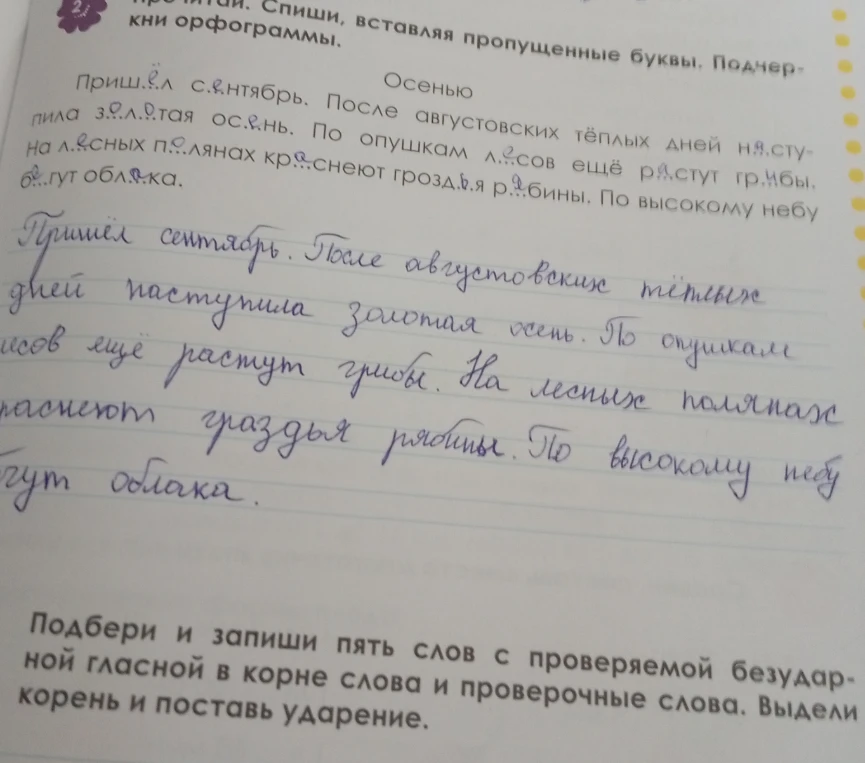 2
Спиши, вставляя пропущенные буквы. Подчер-
кни орфограммы.
Осенью
Приш..ё..л с..е..нтябрь. После августовских тёплых дней н..а..сту-
пила з..о..л..о..тая ос..е..нь. По опушкам л..е..сов ещё р..а..стут гр..и..бы.
На л..е..сных п..о..лянах кр..а..снеют грозд..ь..я р..я..бины. По высокому небу
б..е..гут обл..а..ка.
Пришёл сентябрь. После августовских тёплых
дней наступила золотая осень. По опушкам
исов ещё растут грибы. На лесных полянах
раснеют граздья рябины. По высокому небу
гут облака.
Подбери и запиши пять слов с проверяемой безудар-
ной гласной в корне слова и проверочные слова. Выдели
корень и поставь ударение.